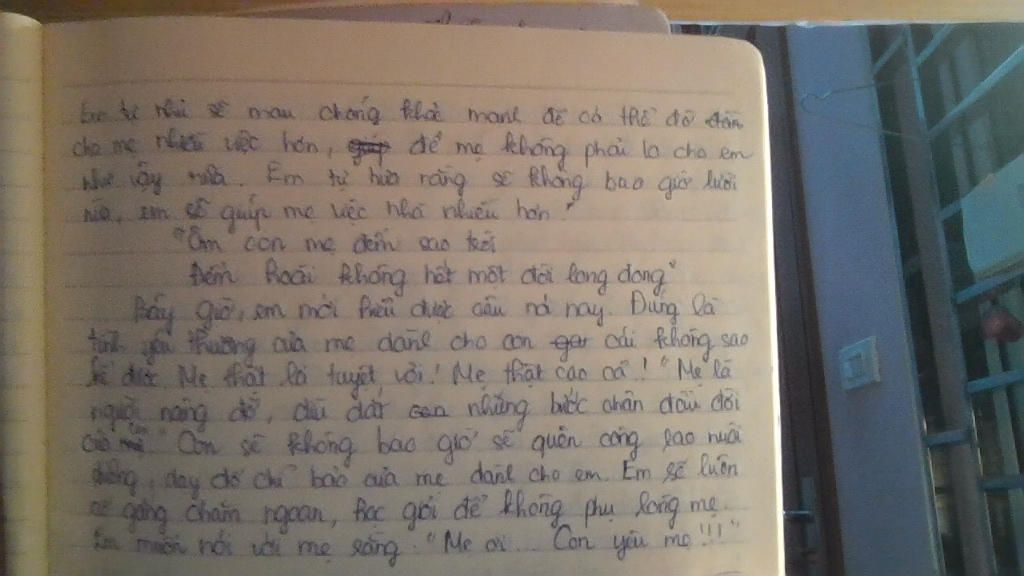 Em tự nhủ sẽ mau chóng khoẻ mạnh để có thể đỡ đần
cho mẹ nhiều việc hơn, để mẹ không phải lo cho em
như vậy nữa. Em tự hứa rằng sẽ không bao giờ lười
nữa, em sẽ giúp mẹ việc nhà nhiều hơn.
"Ôm con mẹ đếm sao trời
Đếm hoài không hết một đời long đong"
Bấy giờ, em mới hiểu được câu nói này. Đúng là
tình yêu thương của mẹ dành cho con cái không sao
kể được. Mẹ thật là tuyệt vời! Mẹ thật cao cả! "Mẹ là
người nâng đỡ, dìu dắt những bước chân đầu đời
của con" Con sẽ không bao giờ sẽ quên công lao nuôi
dưỡng, dạy dỗ chỉ bảo của mẹ dành cho em. Em sẽ luôn
cố gắng chăm ngoan, học giỏi để không phụ lòng mẹ.
Em muốn nói với mẹ rằng: "Mẹ ơi... Con yêu mẹ!!!"